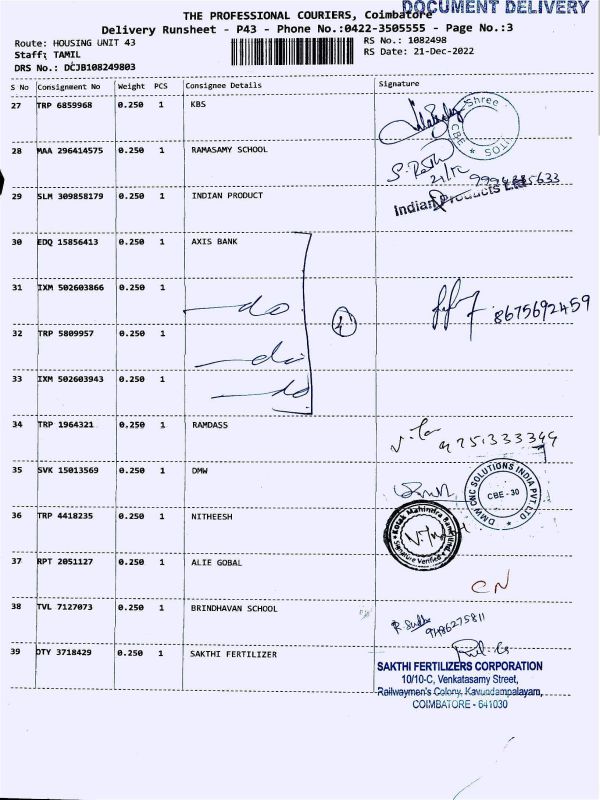 DOCUMENT DELIVERY
THE PROFESSIONAL COURIERS, Coimbatore
Delivery Runsheet - P43 - Phone No.:0422-3505555 - Page No.:3
Route: HOUSING UNIT 43 RS No.: 1082498
Staff: TAMIL RS Date: 21-Dec-2022
DRS No.: DCJB108249803
S No Consignment No Weight PCS Consignee Details Signature
27 TRP 6859968 0.250 1 KBS
Shree
CBE
28 MAA 296414575 0.250 1 RAMASAMY SCHOOL
21/12
29 SLM 309858179 0.250 1 INDIAN PRODUCT
Indian Products Ltd
30 EDQ 15856413 0.250 1 AXIS BANK
31 IXM 502603866 0.250 1
do
4
8675692459
32 TRP 5809957 0.250 1
do
33 IXM 502603943 0.250 1
do
34 TRP 1964321 0.250 1 RAMDASS
35 SVK 15013569 0.250 1 DMW
DMW CNC SOLUTIONS INDIA PVT LTD
CBE - 30
36 TRP 4418235 0.250 1 NITHEESH
Kotak Mahindra Bank
Signature Verified
37 RPT 2051127 0.250 1 ALIE GOBAL
CN
38 TVL 7127073 0.250 1 BRINDHAVAN SCHOOL
9486275811
39 DTY 3718429 0.250 1 SAKTHI FERTILIZER
SAKTHI FERTILIZERS CORPORATION
10/10-C, Venkatasamy Street,
Railwaymen's Colony, Kavundampalayam,
COIMBATORE - 641030